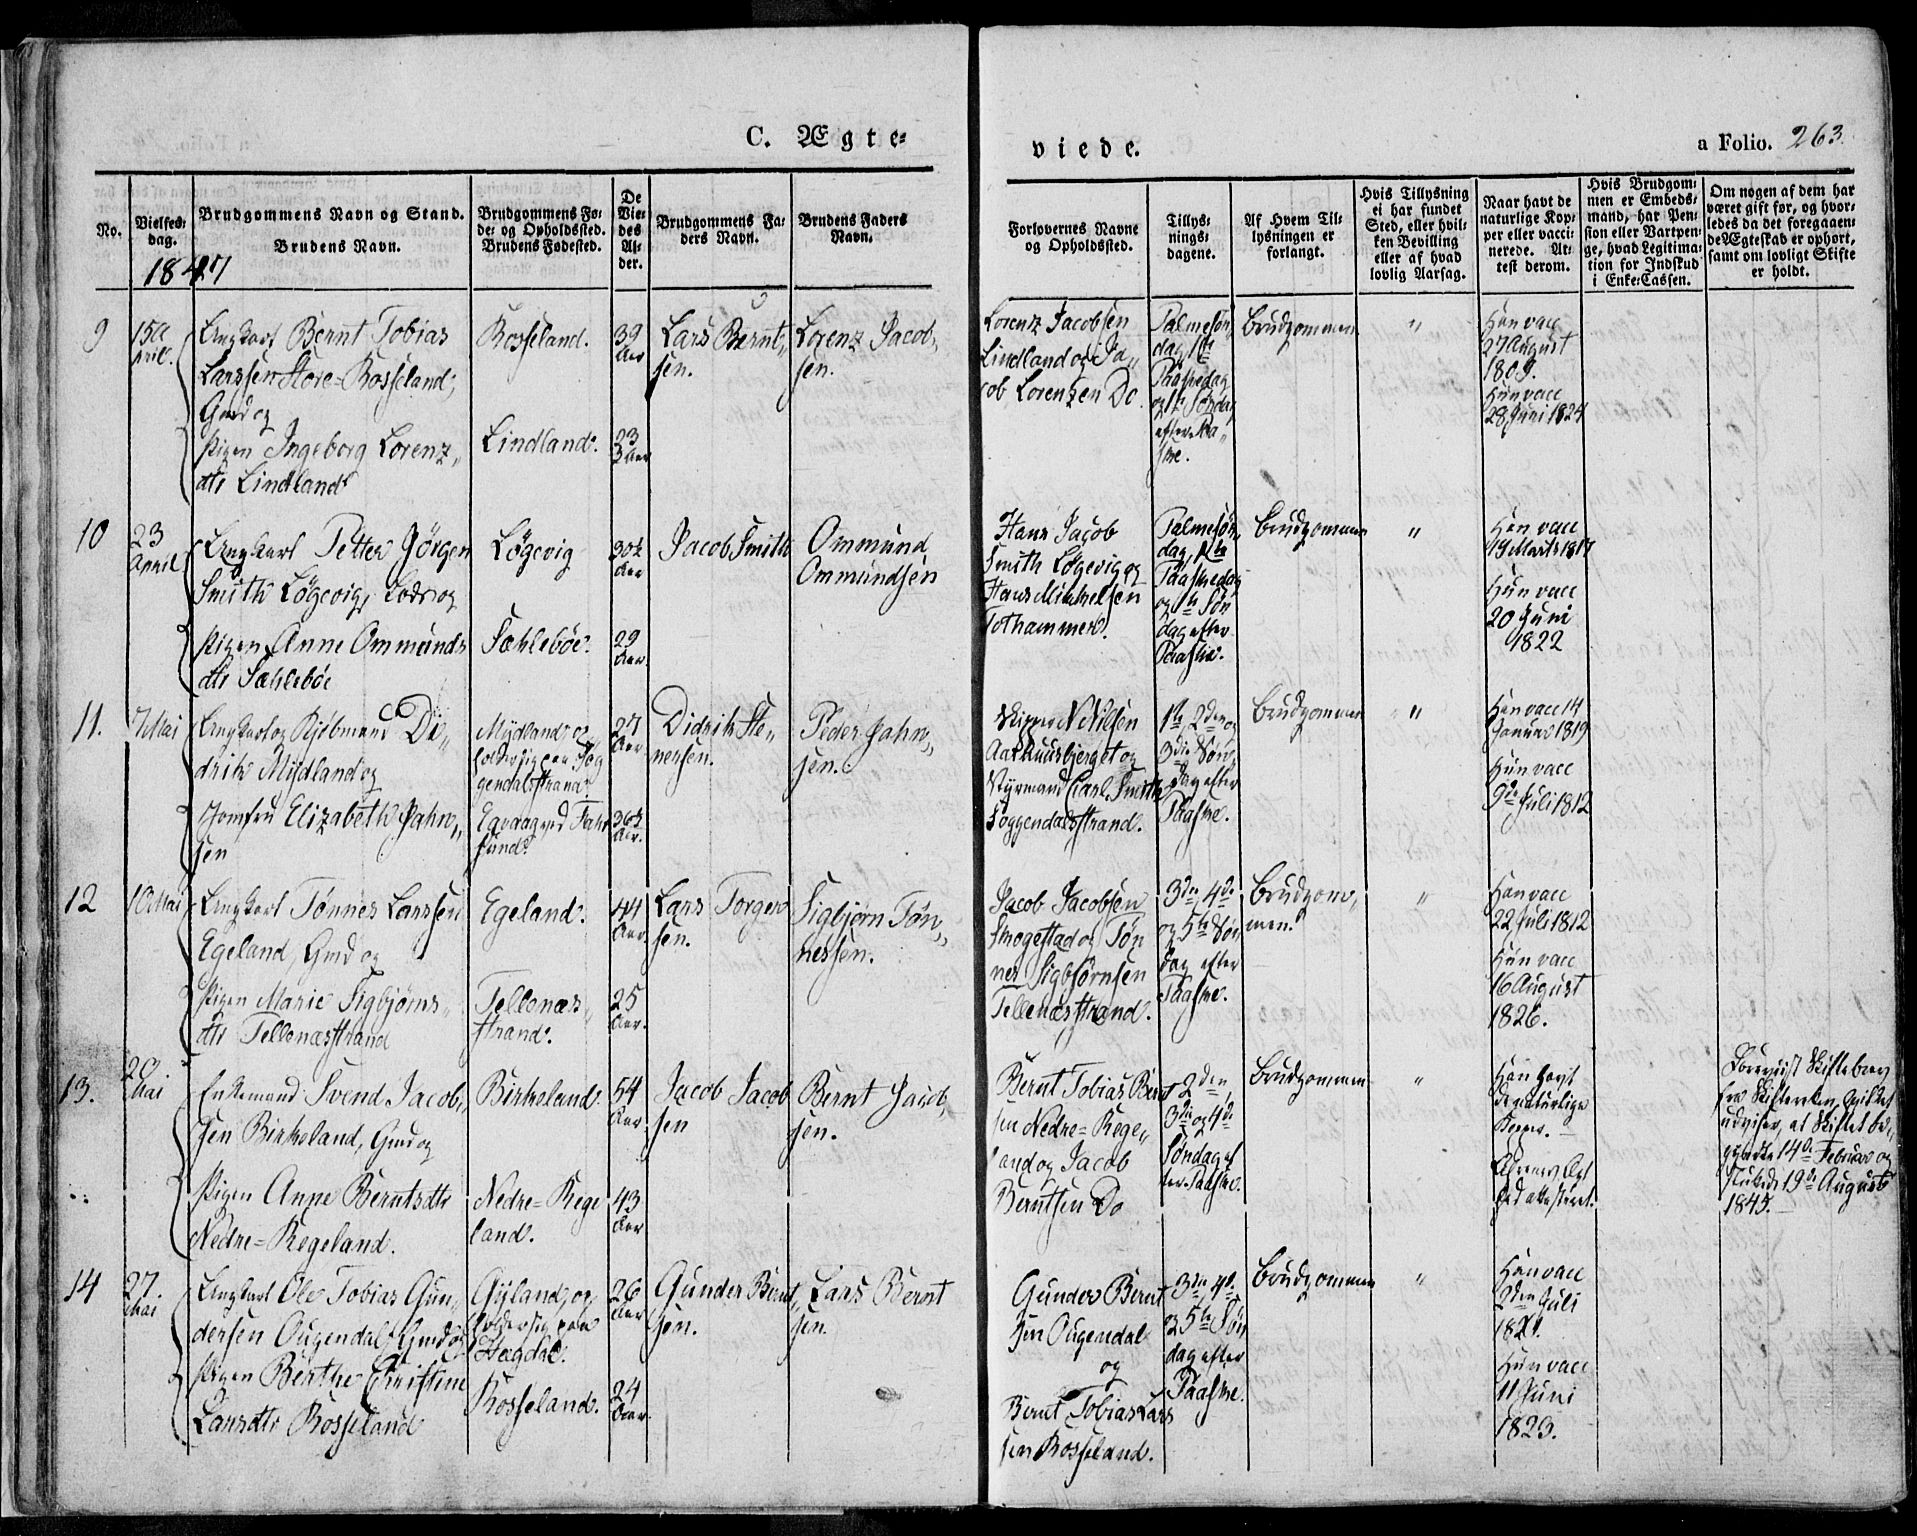 C. Ægte-
viede.
a Folio. 263.
No.
Vielses-
dag.
1847
Brudgommens Navn og Stand.
Brudens Navn.
Brudgommens Fø-
de- og Opholdssted.
Brudens Fødested.
De
Vie-
des
Al-
der.
Brudgommens Fa-
ders Navn.
Brudens Faders
Navn.
Forlovernes Navne
og Opholdssted.
Tillys-
nings-
dagene.
Af Hvem Til-
lysningen er
forlangt.
Hvis Tillysning
ei har fundet
Sted, eller hvil-
ken Bevilling
eller af hvad
lovlig Aarsag.
Naar havt de
naturlige Kop-
per eller vacci-
nerede. At-
test derom.
Hvis Brudgom-
men er Embeds-
mand, har Pen-
sion eller Vartpen-
ge, hvad Legitima-
tion for Indskud
i Enke-Cassen.
Om nogen af dem har
været gift før, og hvor-
ledes da det foregaaen-
de Ægteskab er ophørt,
samt om lovligt Skifte
er holdt.
9
15 A
pril.
Ungkarl Bernt Tobias
Larssen Store-Rosseland,
Gmd og
Pigen Ingeborg Lorenz-
dtr Lindland
Rosseland.
Lindland.
39
Aar
23
Aar
Lars Bernt-
sen.
Lorenz Jacob-
sen.
Lorenz Jacobsen
Lindland og Ja-
cob Lorenzen Do
Palmesøn-
dag, 1ste
Paaskedag
og 1ste Søndag
efter Paa-
ske.
Brudgommen
"
Han vacc
27 August
1809.
Hun vacc
28 Juni 1824
10
23
April
Ungkarl Petter Jörgen
Smith Løgevig, Lods og
Pigen Anne Ommunds
dtr Sæhlebøe
Løgevig
Sæhlebøe.
30½
Aar
29
Aar.
Jacob Smith
Ommund
Ommundsen
Hans Jacob
Smith Løgevig og
Hans Mikkelsen
Tothammer.
Palmesøn-
dag, 1ste
Paaskedag
og 1ste Søn
dag efter
Paaske.
Brudgommen
"
Han vacc
19 Marts 1817
Hun vacc
20 Juni
1822
11.
7 Mai
Ungkarl og Kjøbmand Di-
drik Mydland og
Jomfru Elizabeth Jahn-
sen
Mydland og
holder sig paa Sog
gendalsstrand.
ved Fahr
sund.
27
Aar
36½
Aar.
Didrik Ste-
nersen.
Peder Jahn-
sen.
Skipper N Nilsen
Aarhuusbjerget og
Styrmand Carl Smith
Soggendalsstrand.
1ste 2den og
3die Søn-
dag efter
Paaske.
Brudgommen
"
Han vacc 14
Januar 1819
Hun vacc
9de Juli 1812
12
10 Mai
Ungkarl Tönnes Larssen
Egeland, Gmd og
Pigen Marie Sigbjørns-
dtr Tellenæsstrand
Egeland.
Tellenæs-
strand.
44
Aar.
25
Aar.
Lars Torger
sen.
Sigbjørn Tøn-
nessen.
Jacob Jacobsen
Skogestad og Tøn
nes Sigbjørnsen
Tellenæsstrand.
3die, 4de
og 5te Søn
dag efter
Paaske.
Brudgom-
men.
"
Han vacc
22 Juli 1812
Hun vacc
16 August
1826.
13.
20
Mai
Enkemand Svend Jacob-
sen Birkeland, Gmd og
Pigen Anne Berntsdtr
Nedre-Regeland.
Birkeland.
Nedre-Rege
land.
54
Aar.
43
Aar
Jacob Jacob
sen
Bernt Jacob-
sen.
Bernt Tobias Bernt
sen Nedre-Rege-
land og Jacob
Berntsen Do
2den,
3die og 4de
Søndag ef
ter Paaske.
Brudgommen
"
Han havt
de naturlige
Kopper.
Foreviist Skiftebrev
fra Skifteretten, hvilket
udviser, at Skiftet be-
gyndte 14de Februar og
sluttedes 19de August
1845.
14
27.
Mai
Ungkarl Ole Tobias Gun-
dersen Ougendal, Gmd og
Pigen Berthe Christine
Larsdtr Rosseland
Gyland, og
holder sig paa
Hægdal.
Rosseland.
26
Aar
24
Aar.
Gunder Bernt-
sen.
Lars Bernt
sen.
Gunder Bernt
sen Ougendal
og
Bernt Tobias Lars
sen Rosseland.
3die, 4de
og 5te Søn
dag efter
Paaske.
Brudgommen
"
Han vacc
2den Juli
1821.
Hun vacc
11 Juni
1823.